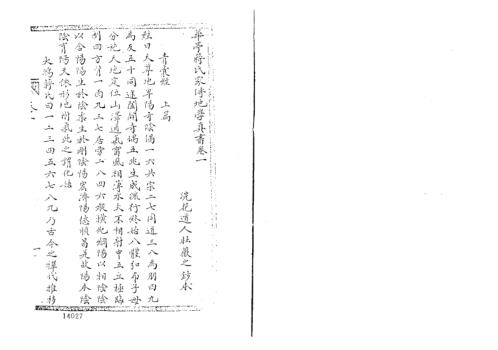 華亭蔣氏家傳地學真書卷一
浣花道人杜之鈔本
青囊經　上篇
經曰天尊地卑陽奇陰偶一六共宗二七同道三八為朋四九
為友五十同途闔闢奇偶五兆生成流行終始八體弘布子母
分施天地定位山澤通氣雷風相薄水火不相射中五立極臨
制四方背一面九三七居旁二八四六縱橫紀綱陽以相陰陰
以含陽陽生於陰柔生於剛陰德弘濟陽德順昌是故陽本陰
陰育陽天依形地附氣此之謂化始
大鴻蔣氏曰一二三四五六七八九乃古今之禪代推移
卷一
14027